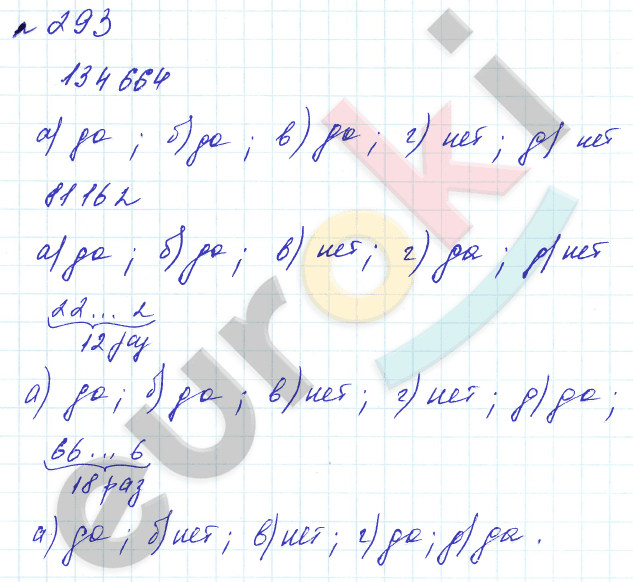 № 293
134 664
а) да ; б) да ; в) да ; г) нет ; д) нет
81 162
а) да ; б) да ; в) нет ; г) да ; д) нет
22 ... 2
12 раз
а) да ; б) да ; в) нет ; г) нет ; д) да ;
66 ... 6
18 раз
а) да ; б) нет ; в) нет ; г) да ; д) да .
euroki